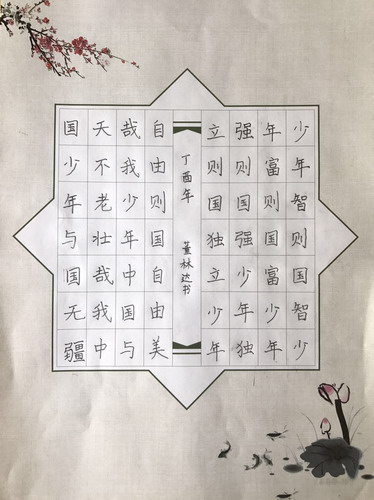 少年智则国智少
年富则国富少年
强则国强少年独
立则国独立少年
丁酉年 董林达书
自由则国自由美
哉我少年中国与
天不老壮哉我中
国少年与国无疆